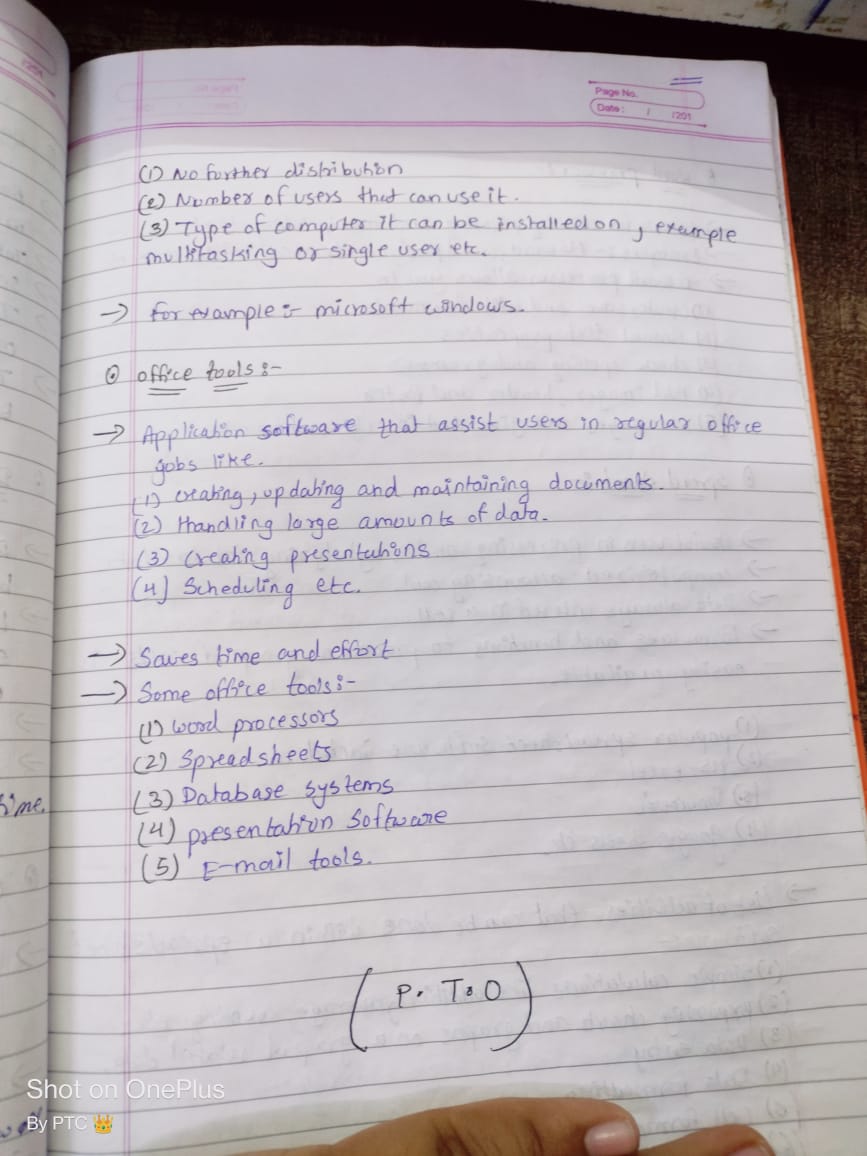 Page No.
Date: / /201
(1) No further distribution
(2) Number of users that can use it.
(3) Type of computer it can be installed on, example
multitasking or single user etc.
→ for example :- microsoft windows.
⊙ office tools :-
→ Application software that assist users in regular office
jobs like.
(1) creating, updating and maintaining documents.
(2) Handling large amounts of data.
(3) Creating presentations
(4) Scheduling etc.
→ Saves time and effort
→ Some office tools :-
(1) word processors
(2) Spreadsheets
(3) Database systems
(4) presentation Software
(5) E-mail tools.
(P. T. O)
time.
Shot on OnePlus
By PTC 👑